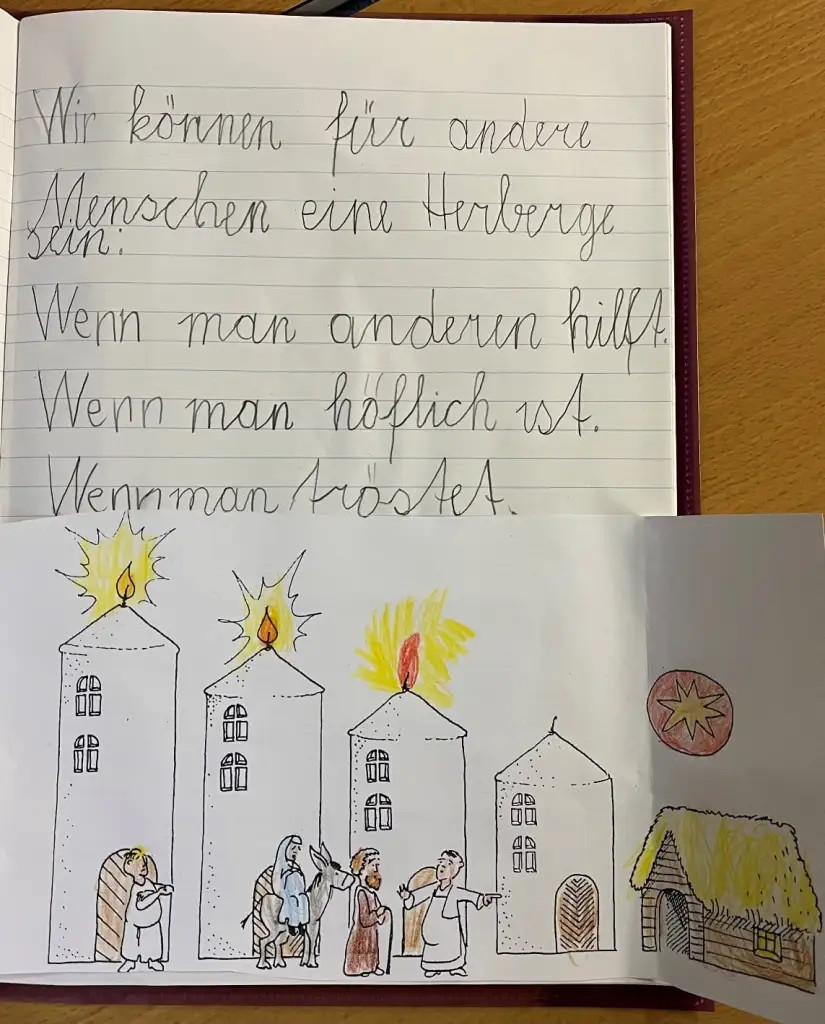 Wir können für andere
Menschen eine Herberge
sein:
Wenn man anderen hilft.
Wenn man höflich ist.
Wenn man tröstet.